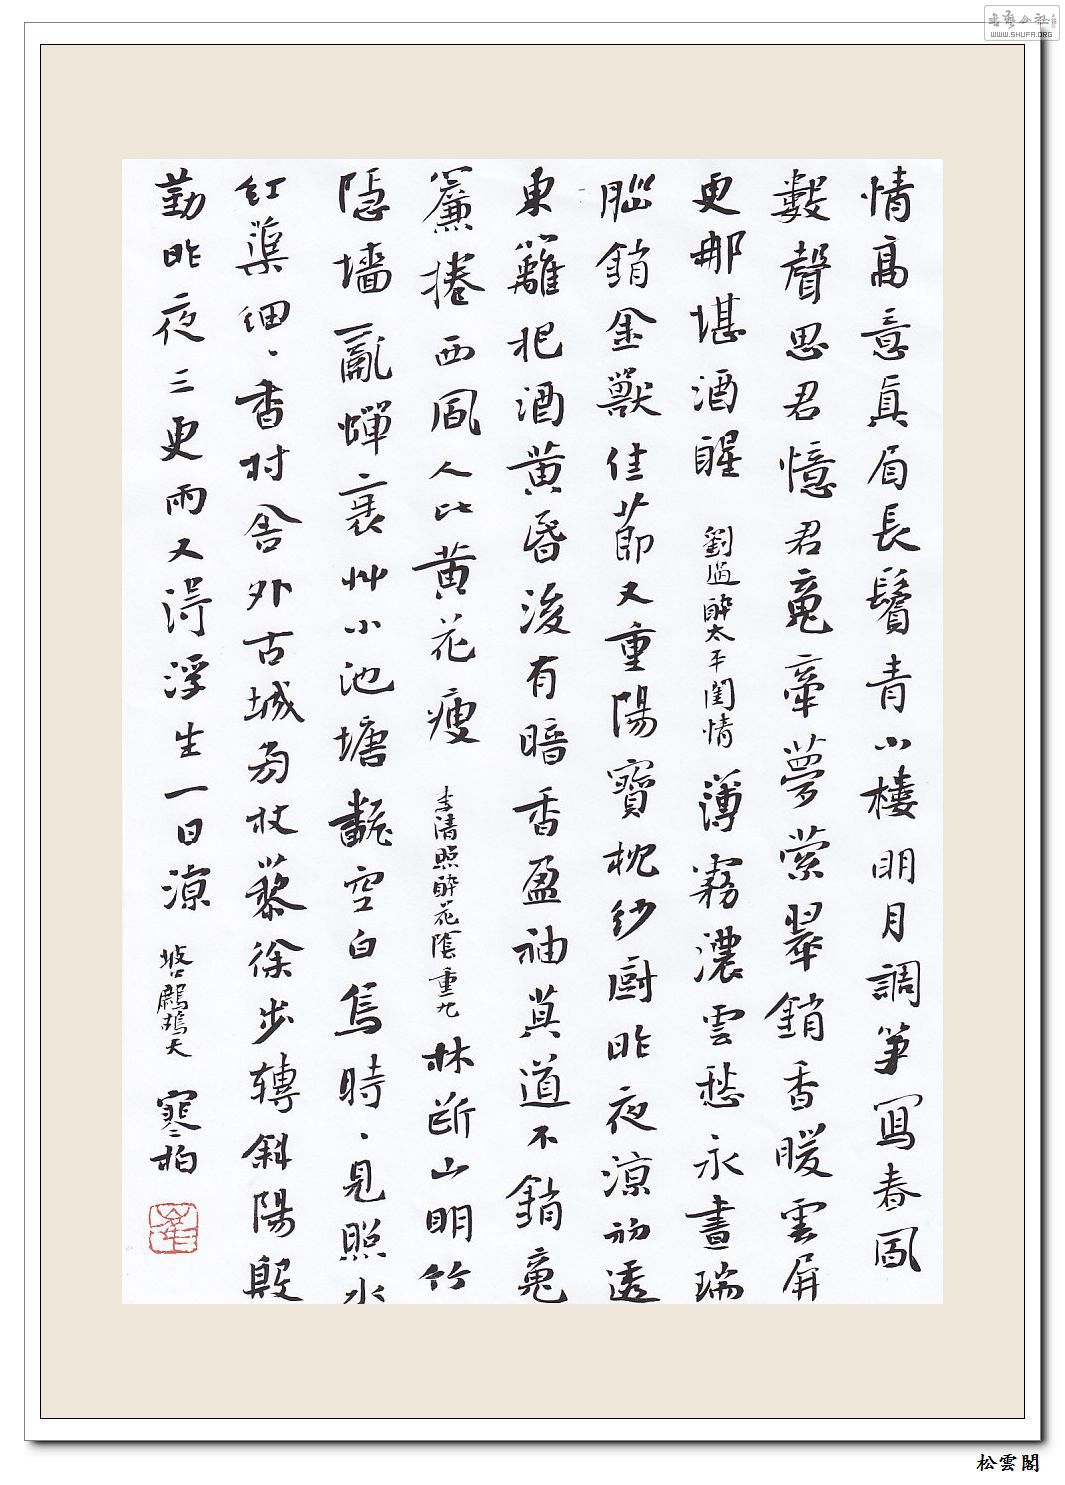 情高意真眉長鬢青小樓明月調箏寫春風
數聲思君憶君䰟牽夢縈翠銷香暖雲屏
更那堪酒醒 劉過醉太平閨情 薄霧濃雲愁永晝瑞
腦銷金獸佳節又重陽寶枕紗廚昨夜涼初透
東籬把酒黃昏後有暗香盈袖莫道不銷䰟
簾捲西風人比黃花瘦 李清照醉花陰重九 林斷山明竹
隱墻亂蟬衰艸小池塘翻空白鳥時、見照水
紅蕖細、香村舍外古城旁杖藜徐步轉斜陽殷
勤昨夜三更雨又得浮生一日涼 坡公鷓鴣天 寒柏
松雲閣
WWW.SHUFA.ORG